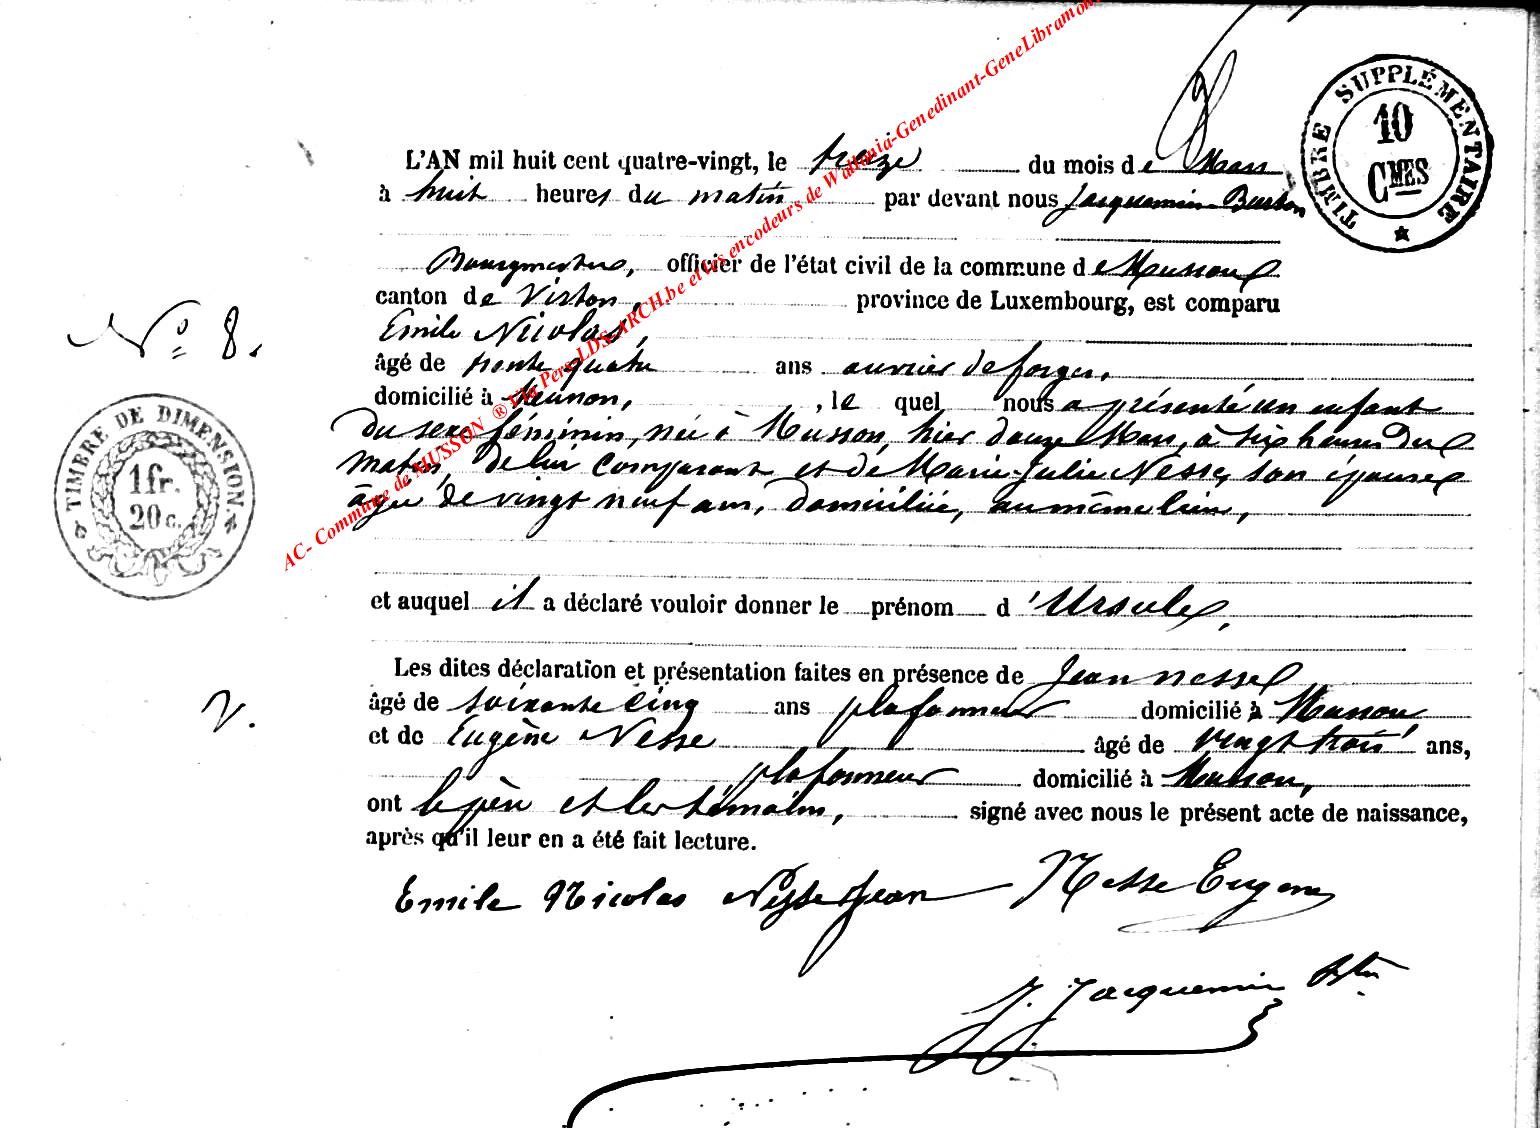 8
TIMBRE SUPPLÉMENTAIRE
10
CMES
L'AN mil huit cent quatre-vingt, le treize du mois de Mars
à huit heures du matin par devant nous Jacquemin-Burton
Bourgmestre, officier de l'état civil de la commune de Musson
canton de Virton, province de Luxembourg, est comparu
Nº 8.
Emile Nicolas,
âgé de trente quatre ans ouvrier de forges,
domicilié à Musson, , le quel nous a présenté un enfant
du sexe féminin, née à Musson, hier douze Mars, à six heures du
matin, de lui comparant et de Marie-Julie Nesse, son épouse
âgée de vingt neuf ans, domiciliée, au même lieu,
TIMBRE DE DIMENSION.
1fr.
20c.
et auquel il a déclaré vouloir donner le prénom d'Ursule,
Les dites déclaration et présentation faites en présence de Jean Nesse
âgé de soixante cinq ans plafonneur domicilié à Musson,
V.
et de Eugène Nesse âgé de vingt trois ans,
plafonneur domicilié à Musson,
ont le père et les témoins, signé avec nous le présent acte de naissance,
après qu'il leur en a été fait lecture.
Emile Nicolas Nesse Jean Nesse Eugene
J. Jacquemin Btn
AC- Commune de MUSSON ® Via Pers-LDS-ARCH.be et les encodeurs de Wallonia-Genedinant-GeneLibramon